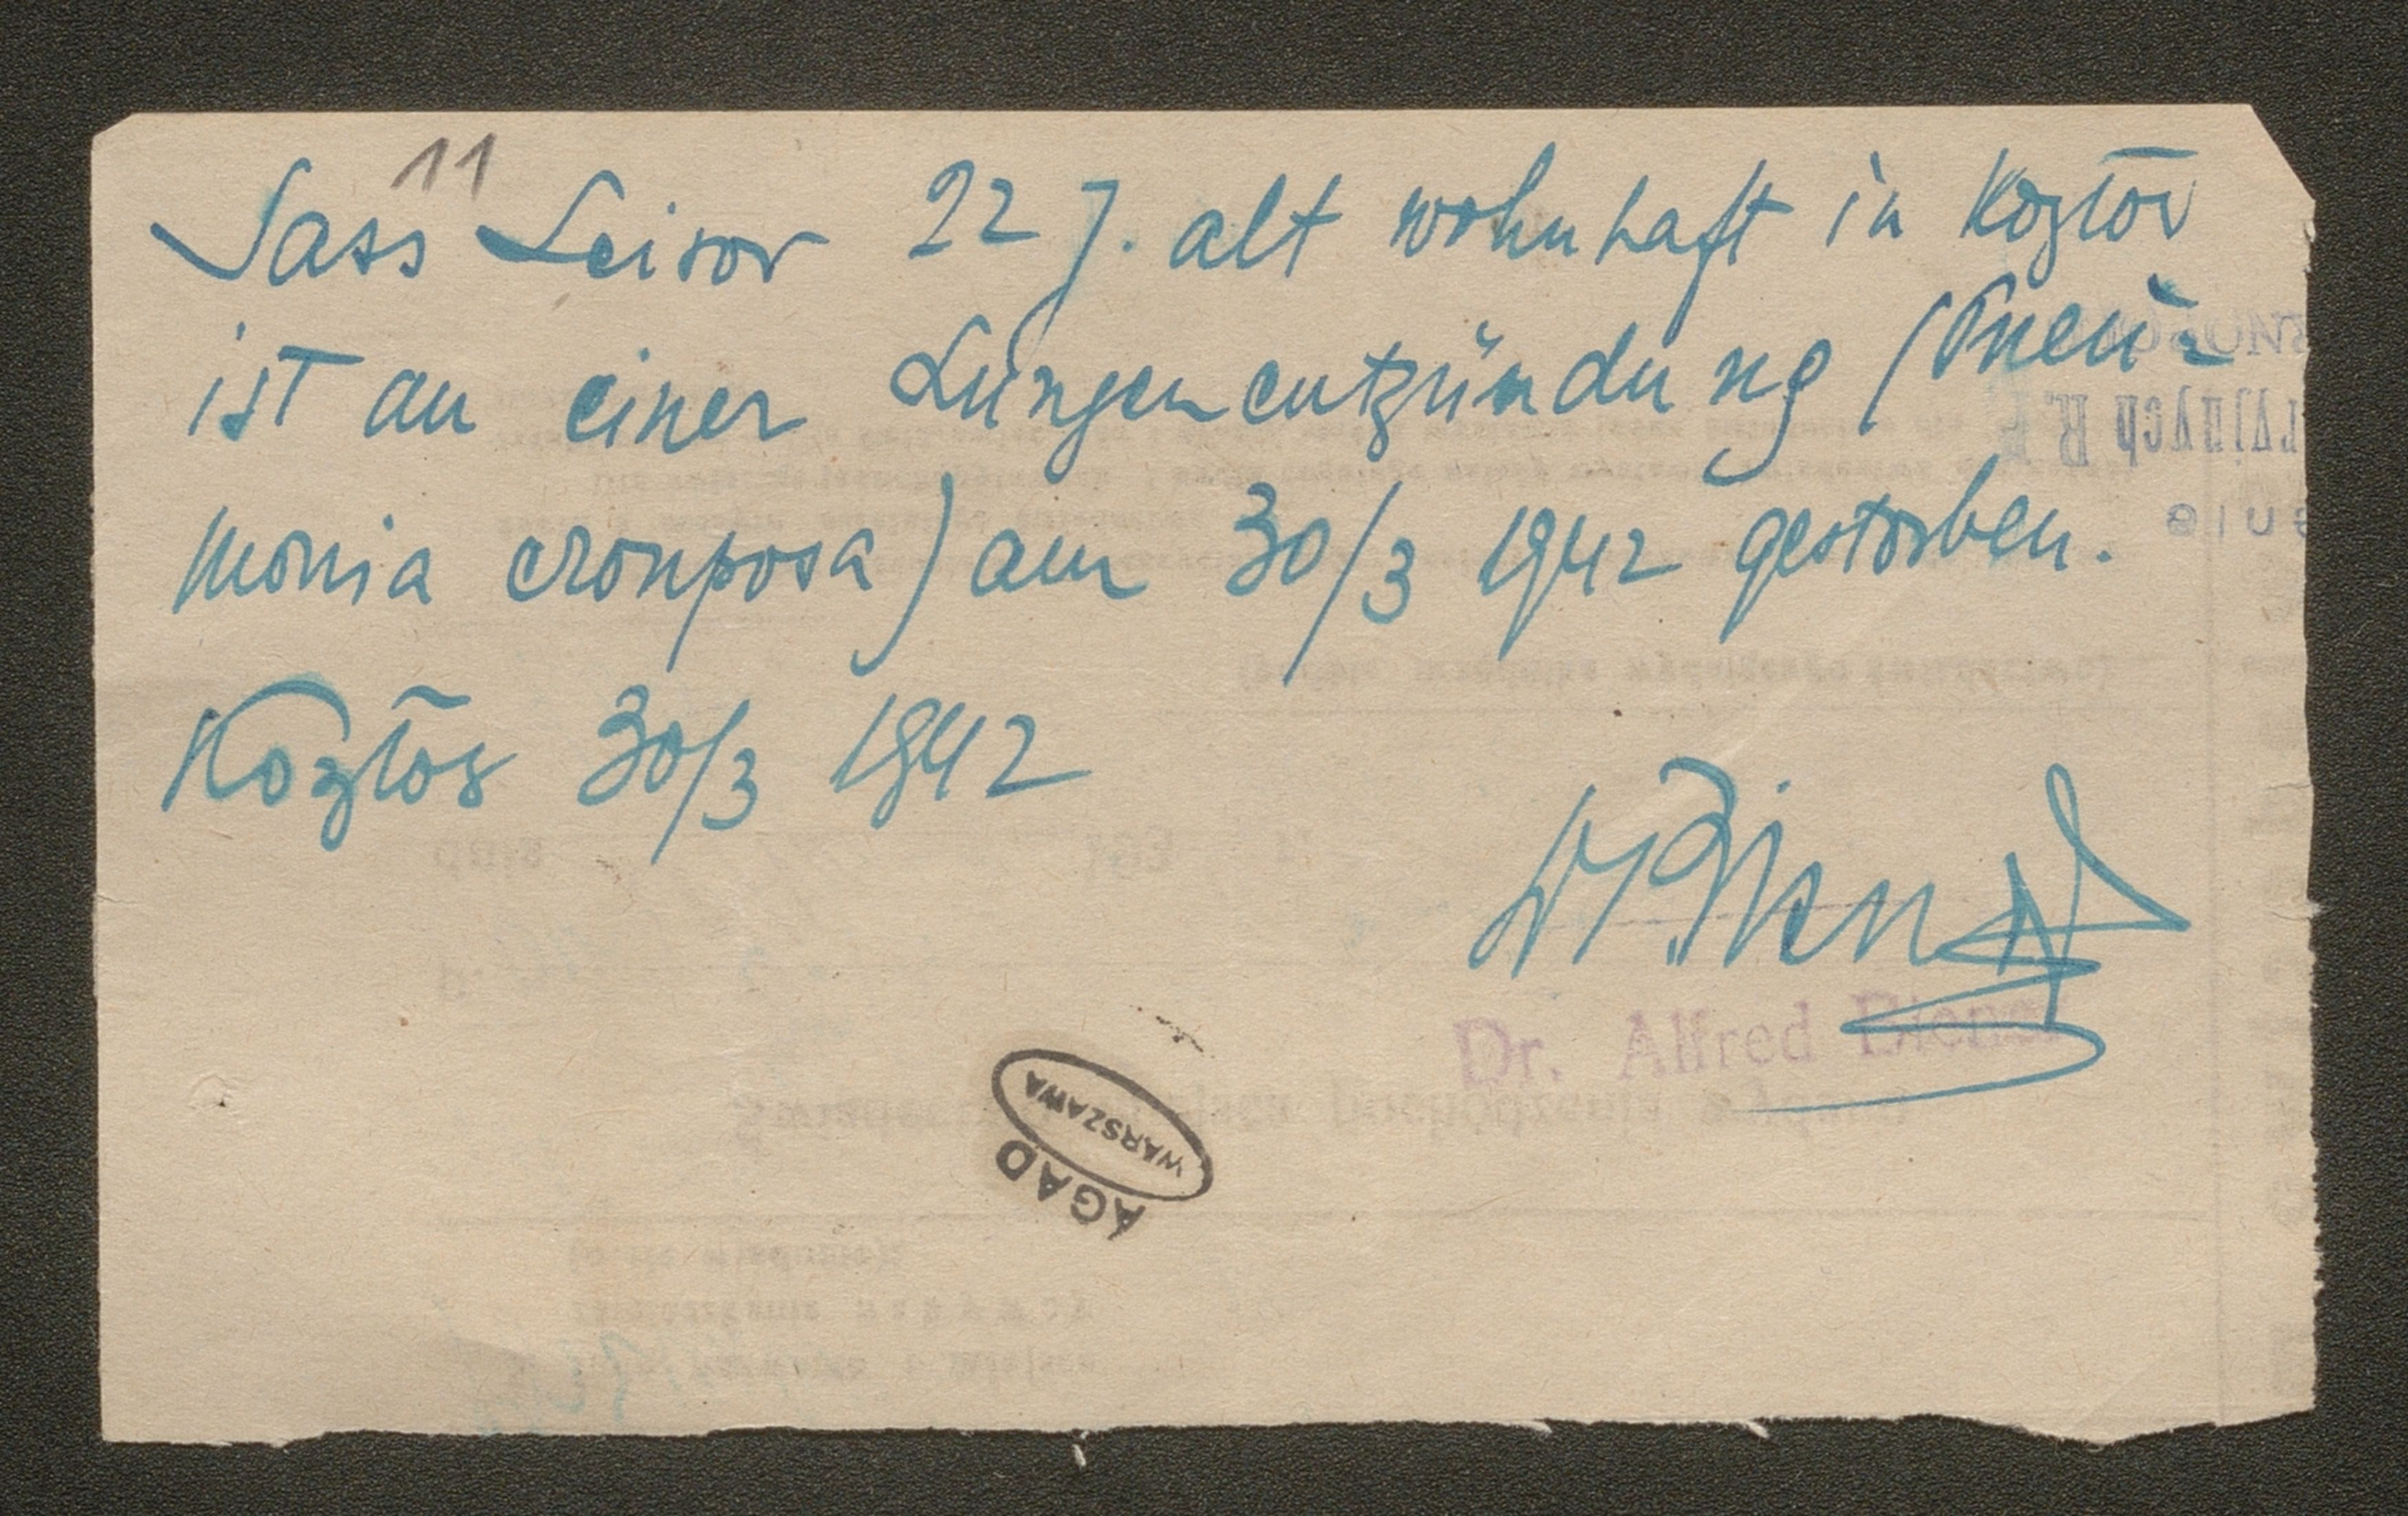 11
Sass Leisor 22 J. alt wohnhaft in Kozłów
ist an einer Lungenentzündung (Pneu-
monia crouposa) am 30/3 1942 gestorben.
Kozłów 30/3 1942
Dr. Alfred Diener
AGAD
WARSZAWA